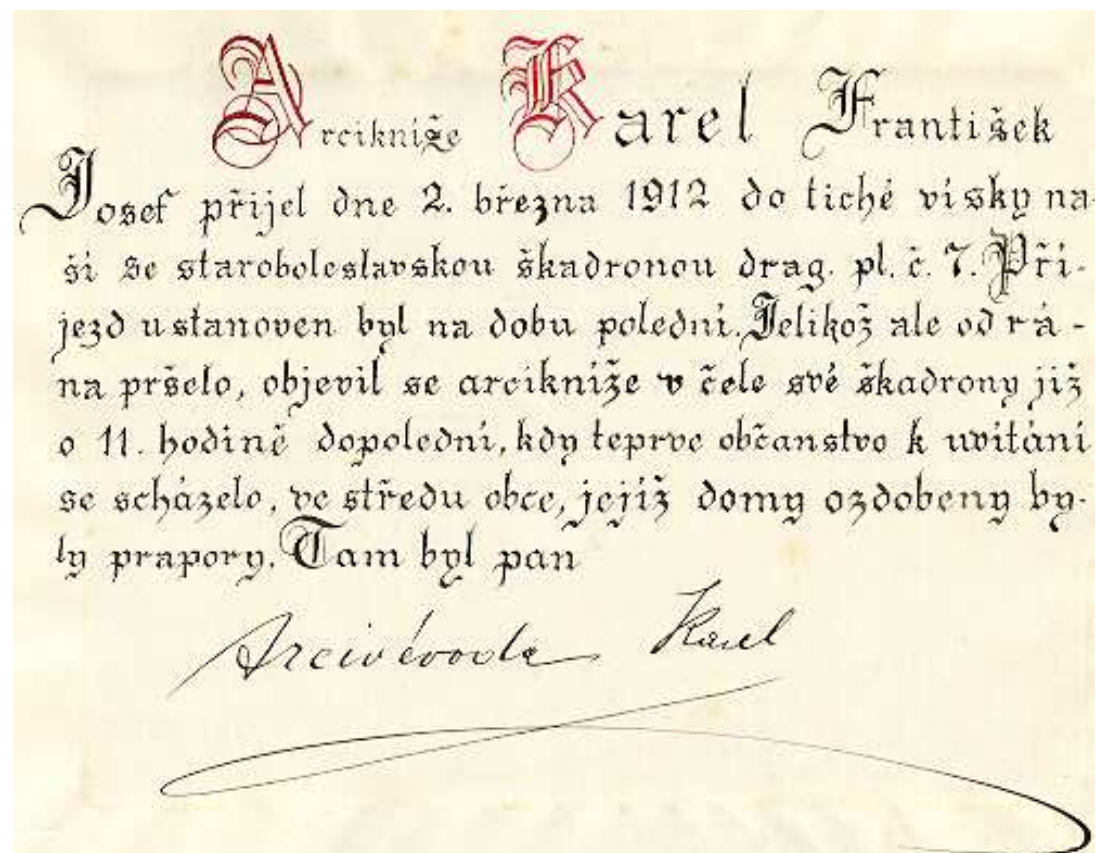 Arcikníže Karel František
Josef přijel dne 2. března 1912 do tiché vísky na-
ší se staroboleslavskou škadronou drag. pl. č. 7. Pří-
jezd ustanoven byl na dobu polední. Jelikož ale od rá-
na pršelo, objevil se arcikníže v čele své škadrony již
o 11. hodině dopolední, kdy teprve občanstvo k uvítání
se scházelo, ve středu obce, jejíž domy ozdobeny by-
ly prapory. Tam byl pan
Arcivévoda Karel